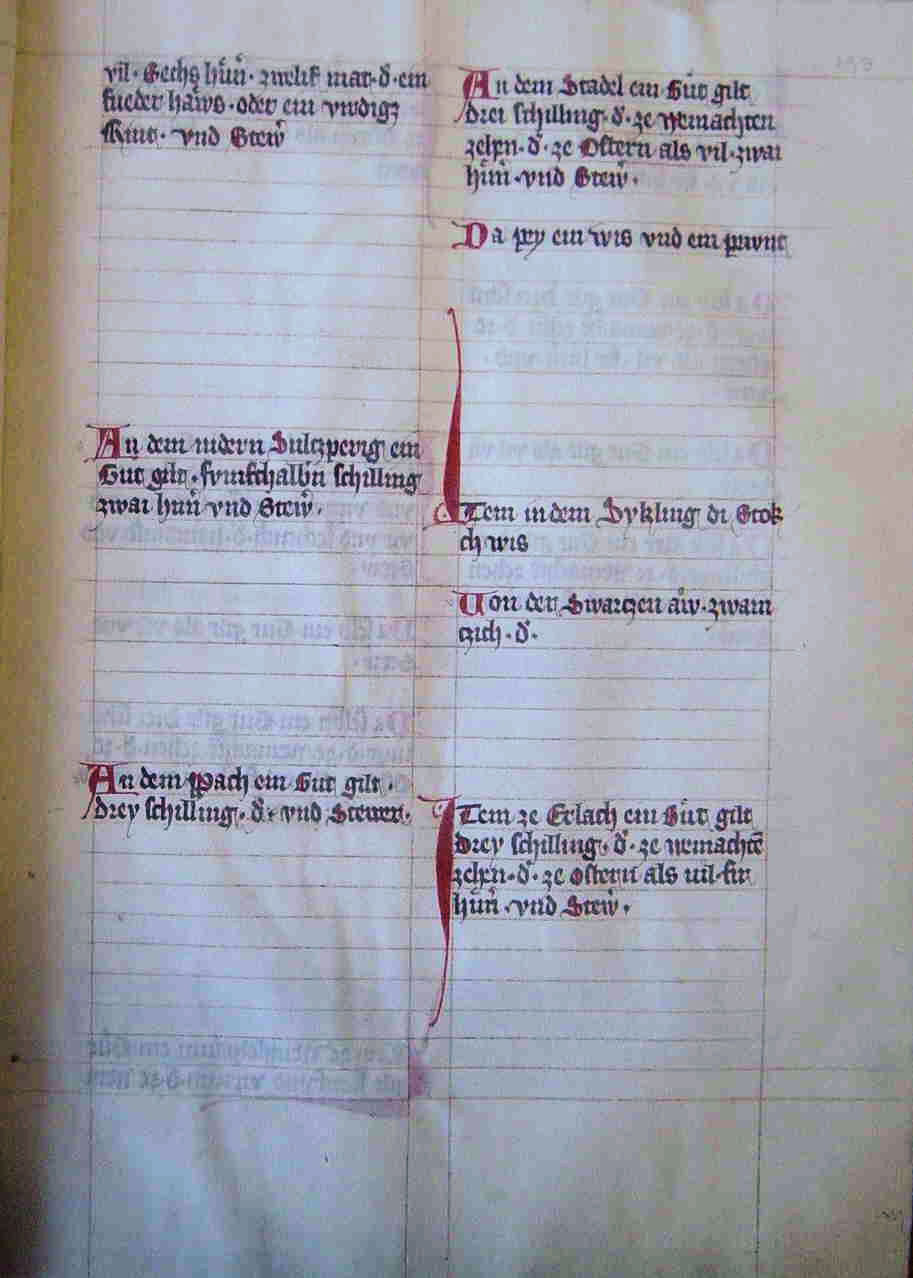 vil · Sechs hůn̄ · zwelif mar · d · ein
fueder häws · oder ein
Rint · vnd Stew̄
An dem nidern Sulczperig ein
Gut gilt · fvmfthalbn schilling
zwai hůn̄ vnd Stew̄ ·
An dem Pach ein Gut gilt ·
drey schilling · d · vnd Stewer ·
An dem Stadel ein Gůt gilt
drei schilling · d · ze weinachten
zehn · d · ze Ostern als vil · zwai
hůn̄ · vnd Stew̄ ·
Da pey ein wis vnd ein pevnt
Item in dem Sykling di Stok
ch wis
Von der Swarczen aw · zwain
czich · d ·
Item ze Erlach ein Gůt gilt
drey schilling · d · ze weinachtē
zehn · d · ze Ostern als uil · fir
hůn̄ · vnd Stew̄ ·